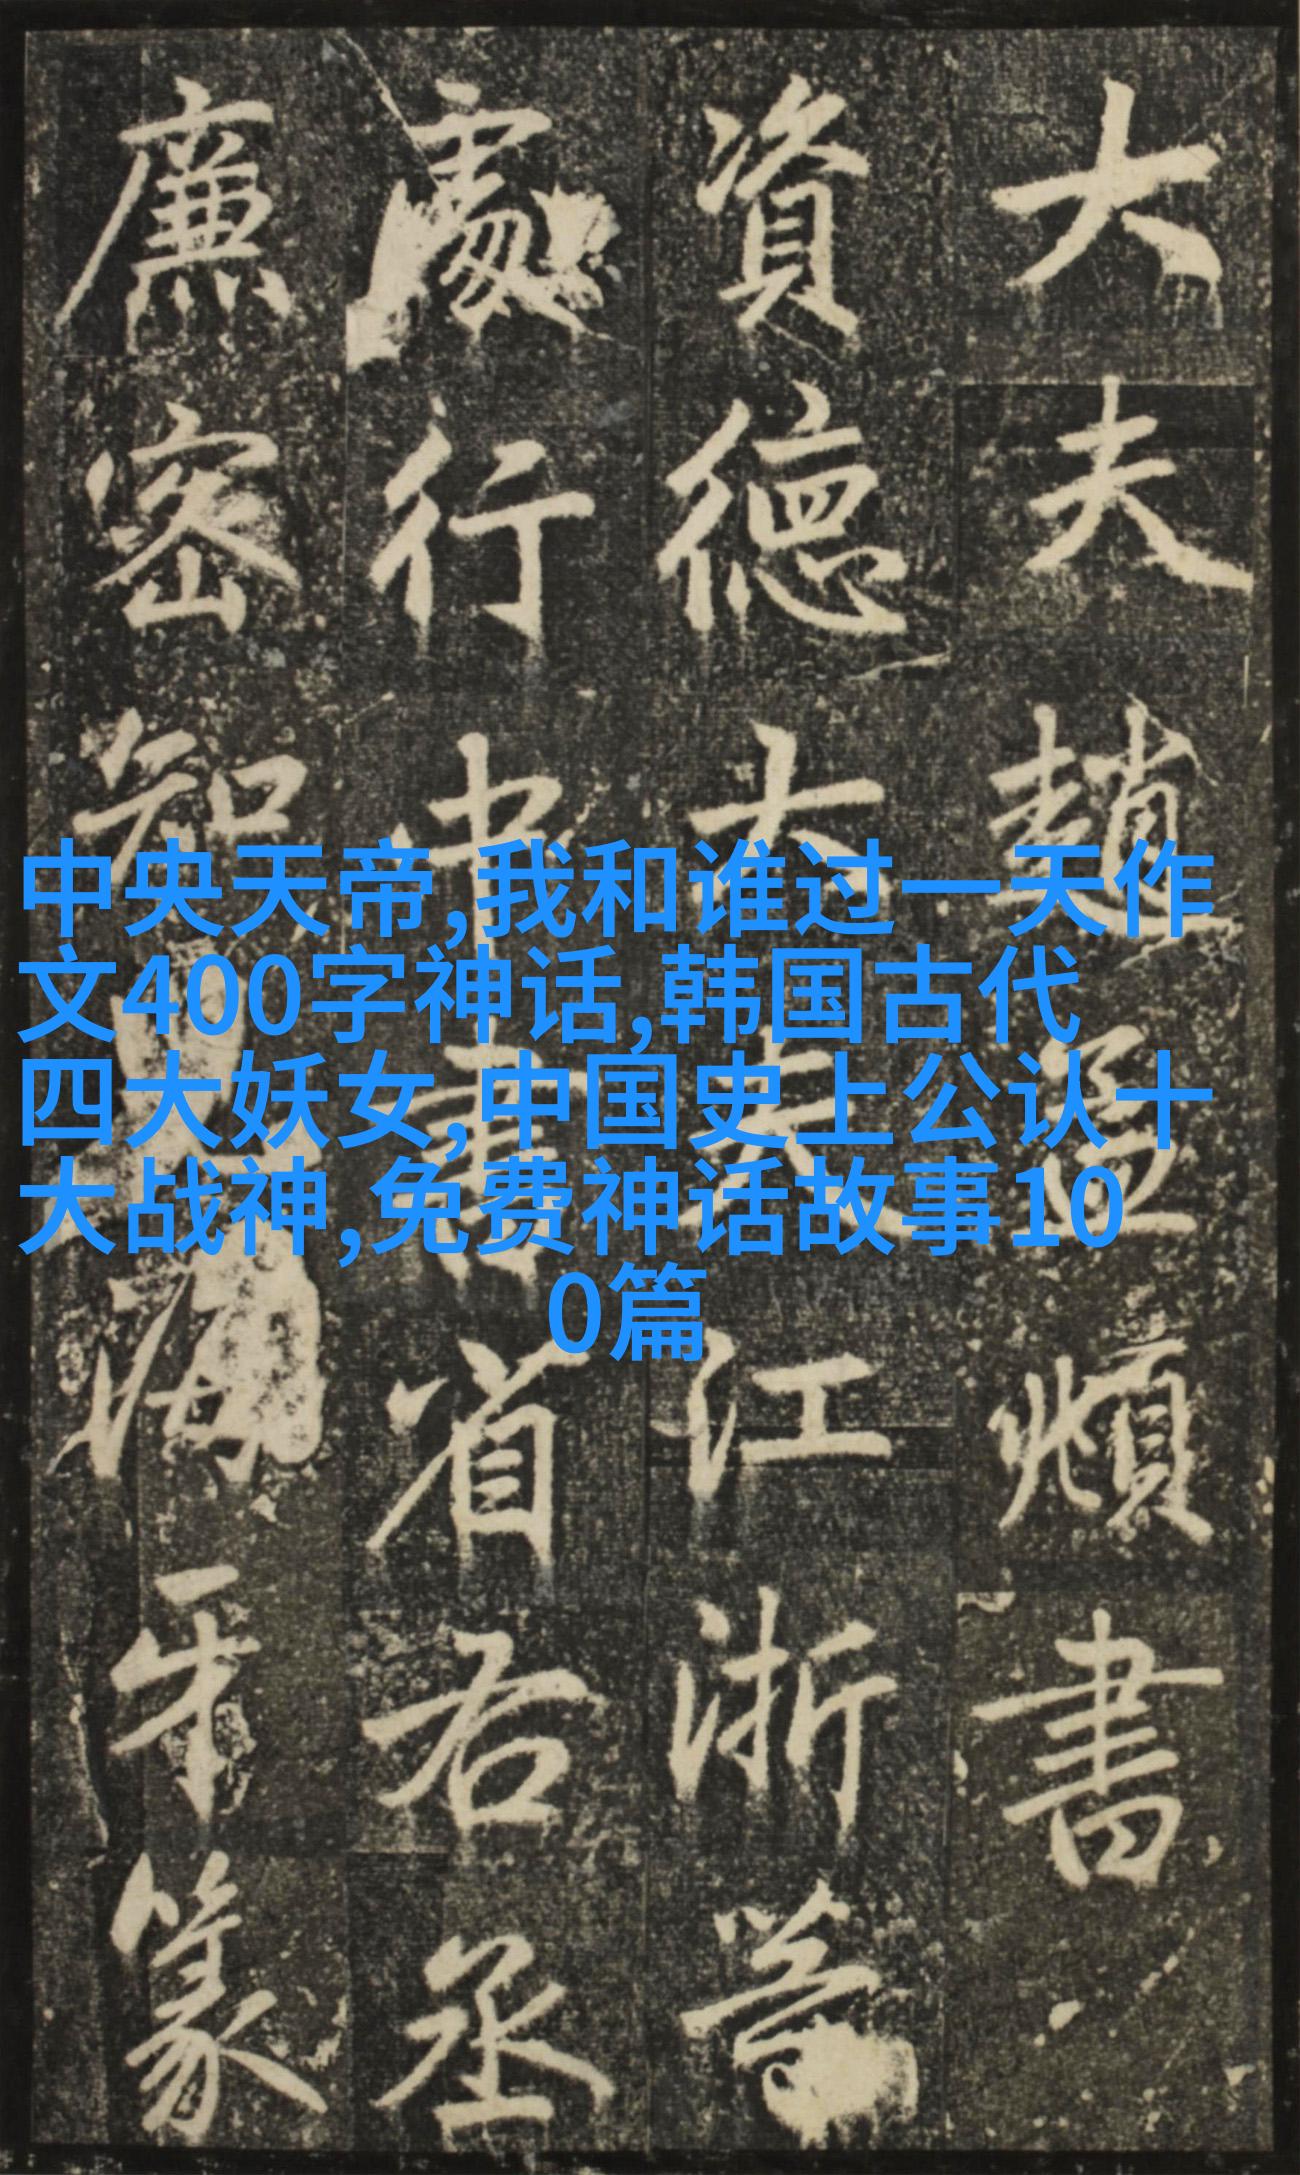 大夫趙孟頫書
資德大夫江浙等
處行中書省右丞
廉密知海牙篆
中央天帝,我和谁过一天作
文400字神话,韩国古代
四大妖女,中国史上公认十
大战神,免费神话故事10
0篇